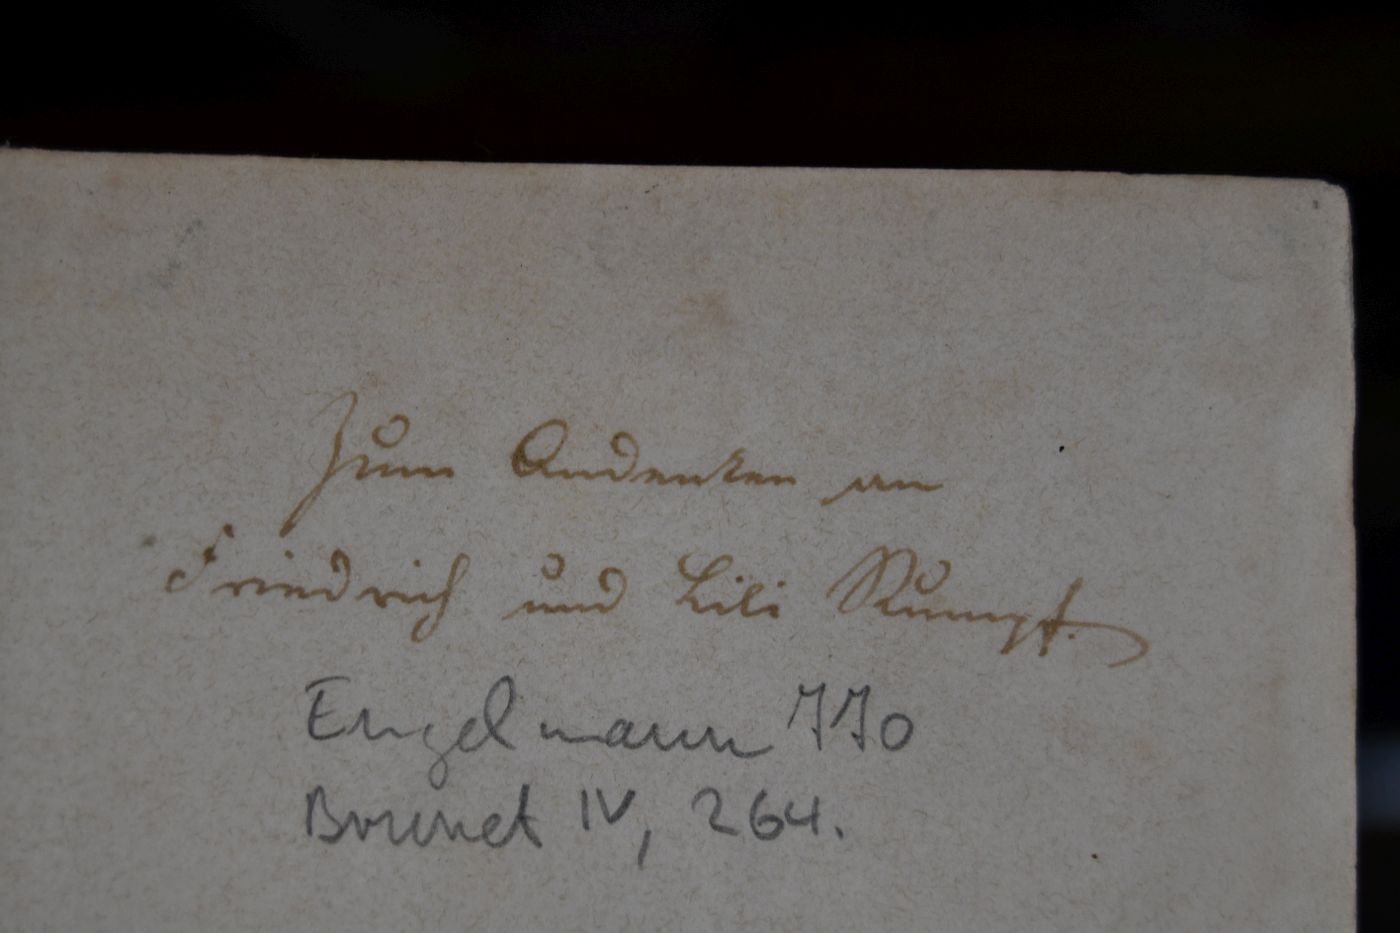 Zum Andenken an
Friedrich und Lili Rumpf.
Engelmann 770
Brunet IV, 264.